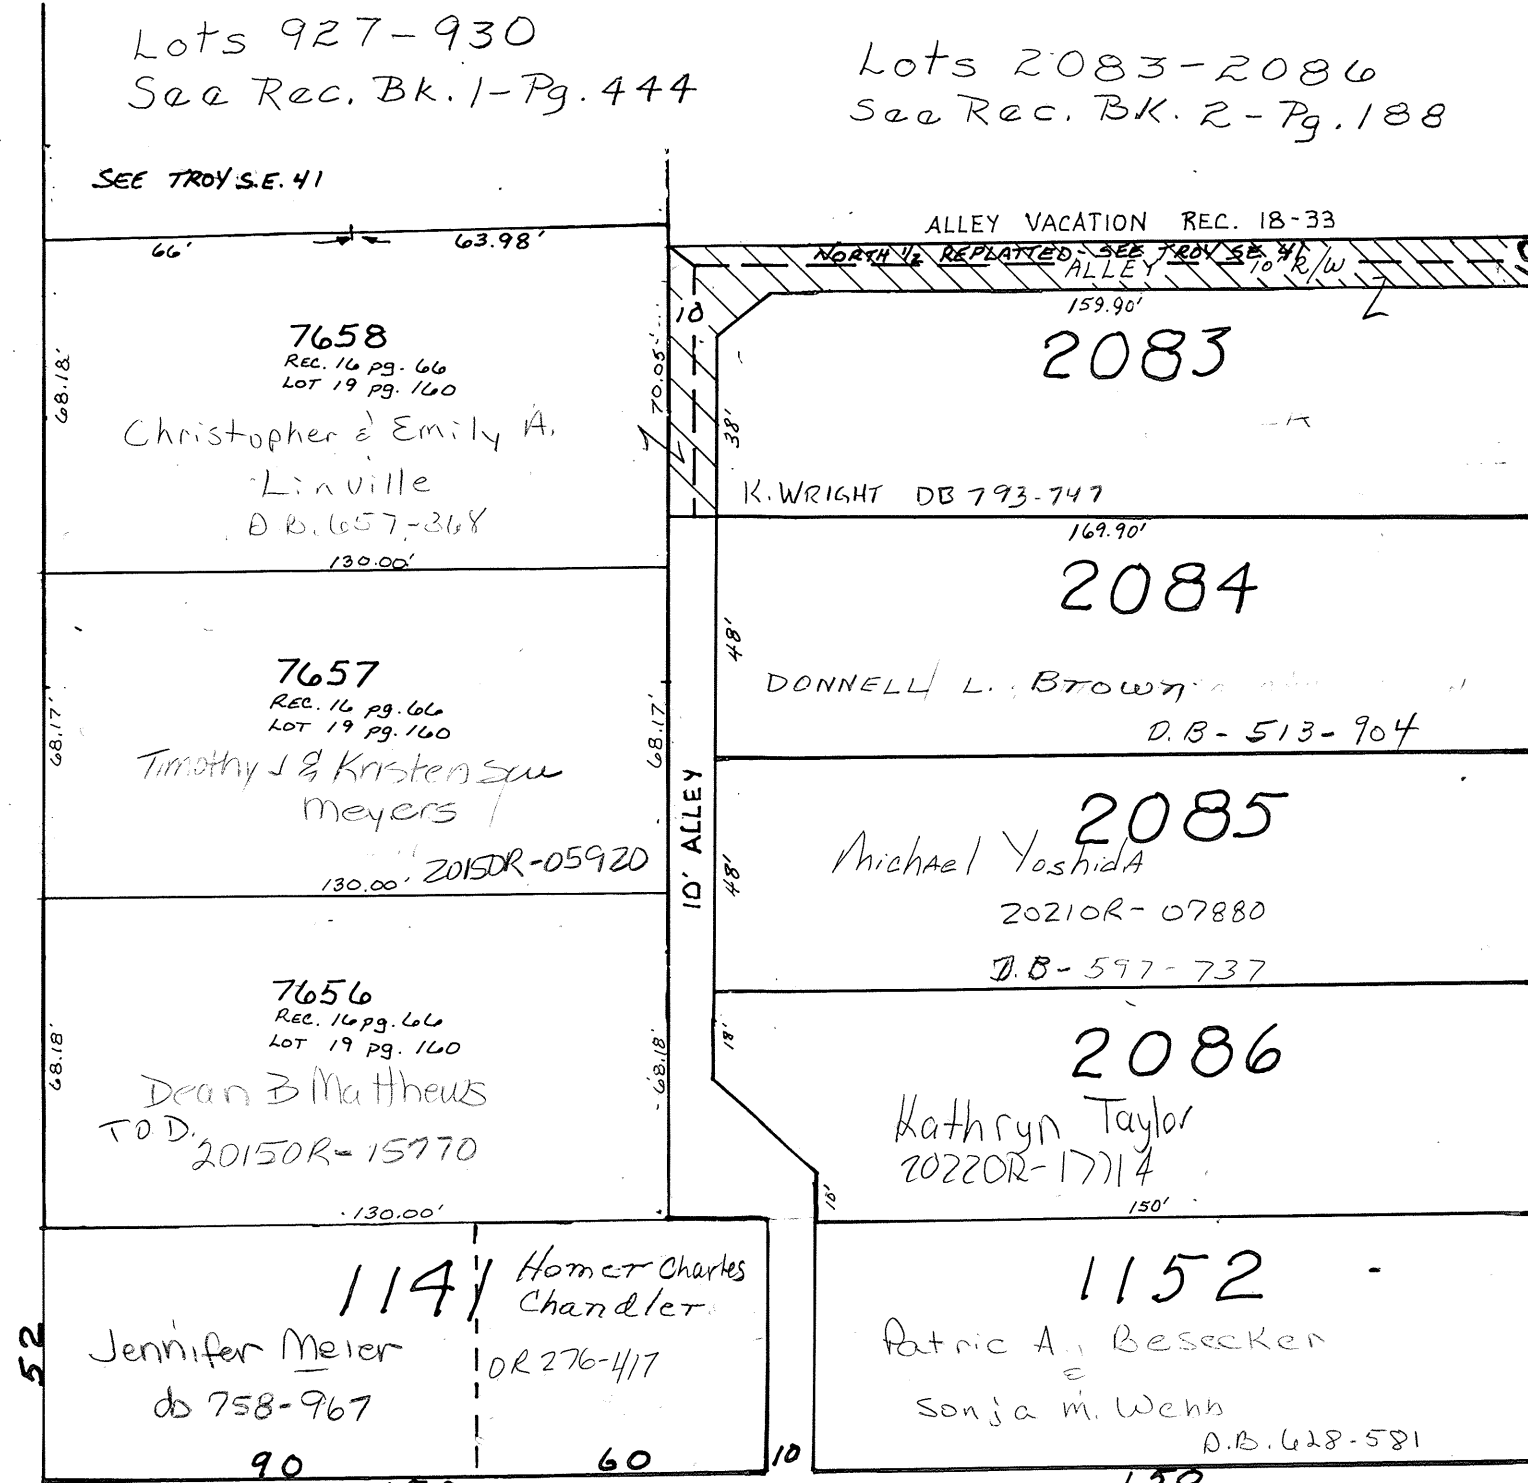 Lots 927-930
See Rec. Bk. 1-Pg. 444
Lots 2083-2086
See Rec. BK. 2-Pg. 188
SEE TROY S.E. 41
66'
63.98'
ALLEY VACATION REC. 18-33
NORTH 1/2 REPLATTED - SEE TROY SE 41
ALLEY 10' R/W
159.90'
10
7658
REC. 16 pg. 66
LOT 19 pg. 160
Christopher & Emily A.
Linville
D.B. 657-368
130.00'
68.18'
70.05'
38'
2083
K. WRIGHT DB 793-747
169.90'
2084
48'
DONNELL L. Brown
D.B - 513-904
7657
REC. 16 pg. 66
LOT 19 pg. 160
Timothy J & Kristen Sue
Meyers
2015OR-05920
130.00'
68.17'
68.17'
10' ALLEY
48'
2085
Michael Yoshida
2021OR-07880
D.B-597-737
7656
REC. 16 pg. 66
LOT 19 pg. 160
Dean B Matthews
T.O.D.
2015OR-15770
130.00'
68.18'
68.18'
18'
2086
Kathryn Taylor
2022OR-17714
10'
150'
1141
Jennifer Meier
db 758-967
Homer Charles
Chandler
OR 276-417
52
90
60
10
1152
Patric A. Besecker
&
Sonja M. Webb
D.B. 628-581
150